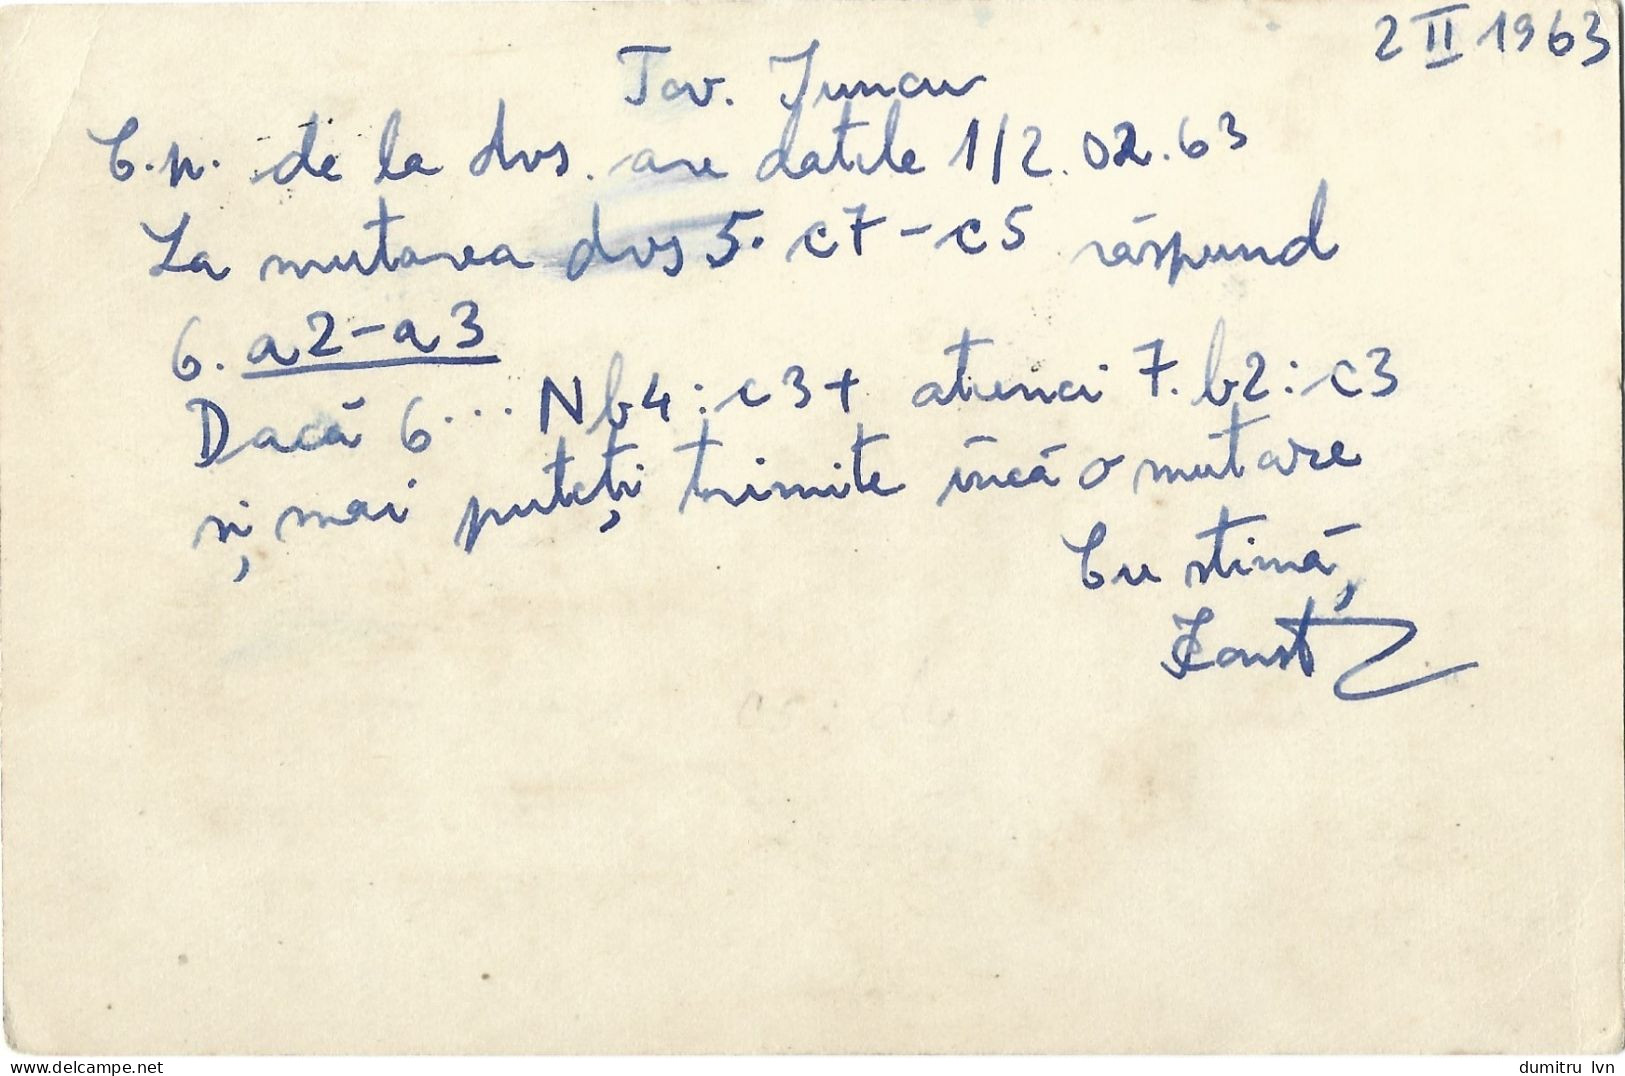 2 II 1963
Tov. Juncu
C.p. de la dvs. are datile 1/2.02.63
La mutarea dvs 5. c7-c5 răspund
6. a2-a3
Dacă 6... Nb4:c3+ atunci 7. b2:c3
și mai puteți trimite încă o mutare
Cu stimă,
dumitru lvn